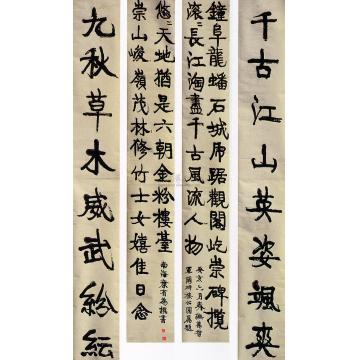 千古江山英姿颯爽
鐘阜龍蟠石城虎踞觀閣屹崇碑攬
滾〻長江淘盡千古風流人物
癸亥六月
崇山峻嶺茂林修竹士女嬉佳日念
悠〻天地猶是六朝金粉樓臺
南海康有為撰書
九秋草木威武紛紜